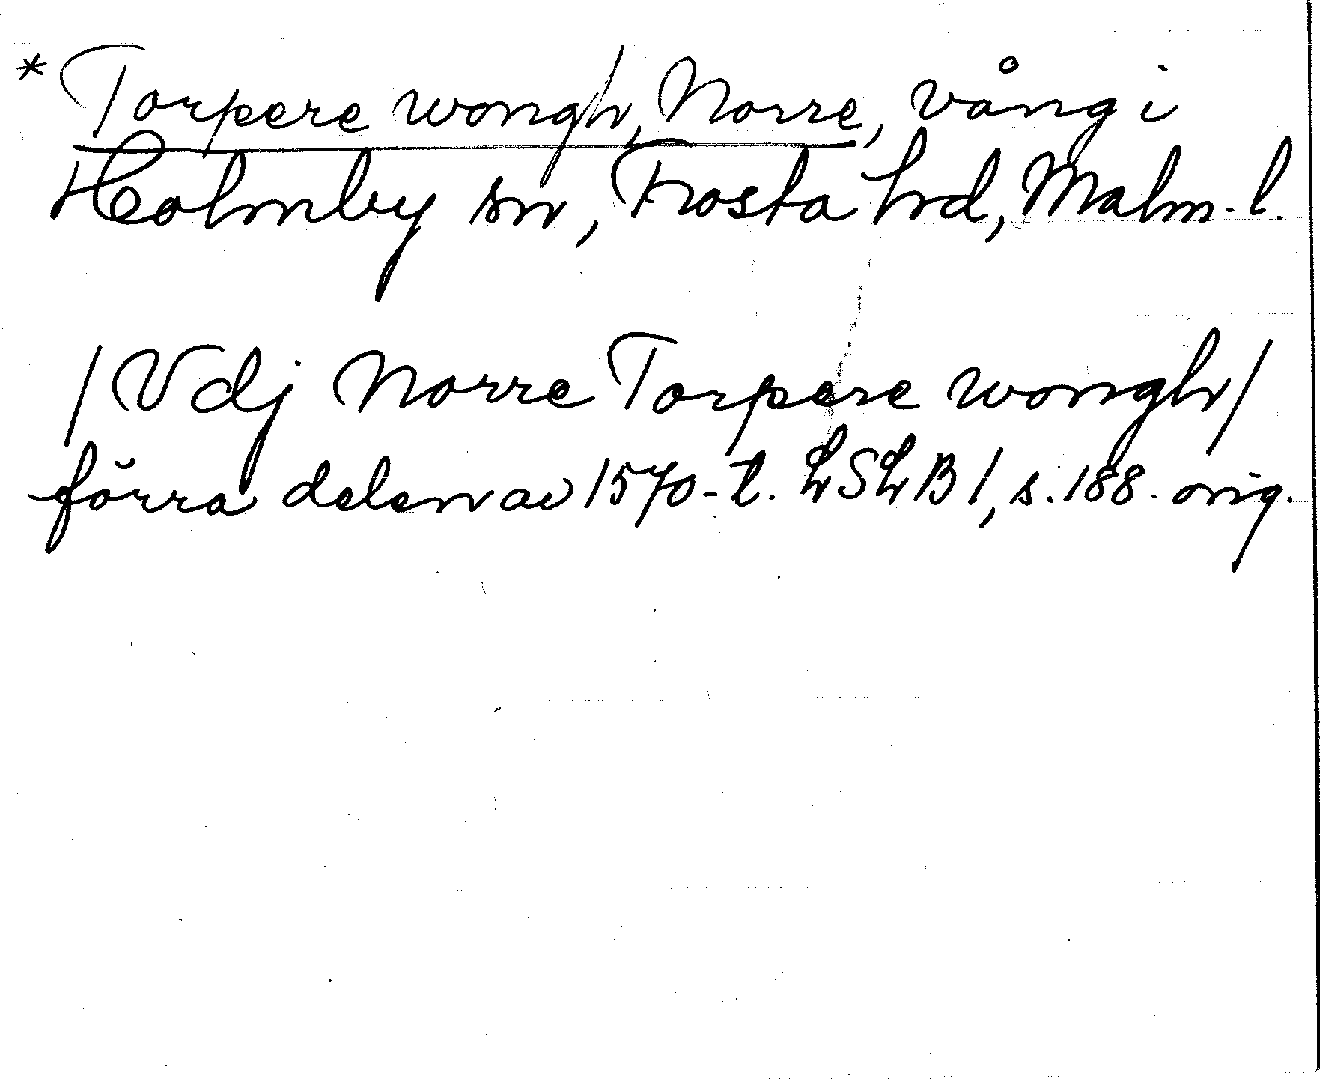 * Torpere wongh, Norre, vång i
Holmby sn, Frosta hd, Malm. l.
/Vdj Norre Torpere wongh/
förra delen av 1570-t. LSLB 1, s. 188. orig.